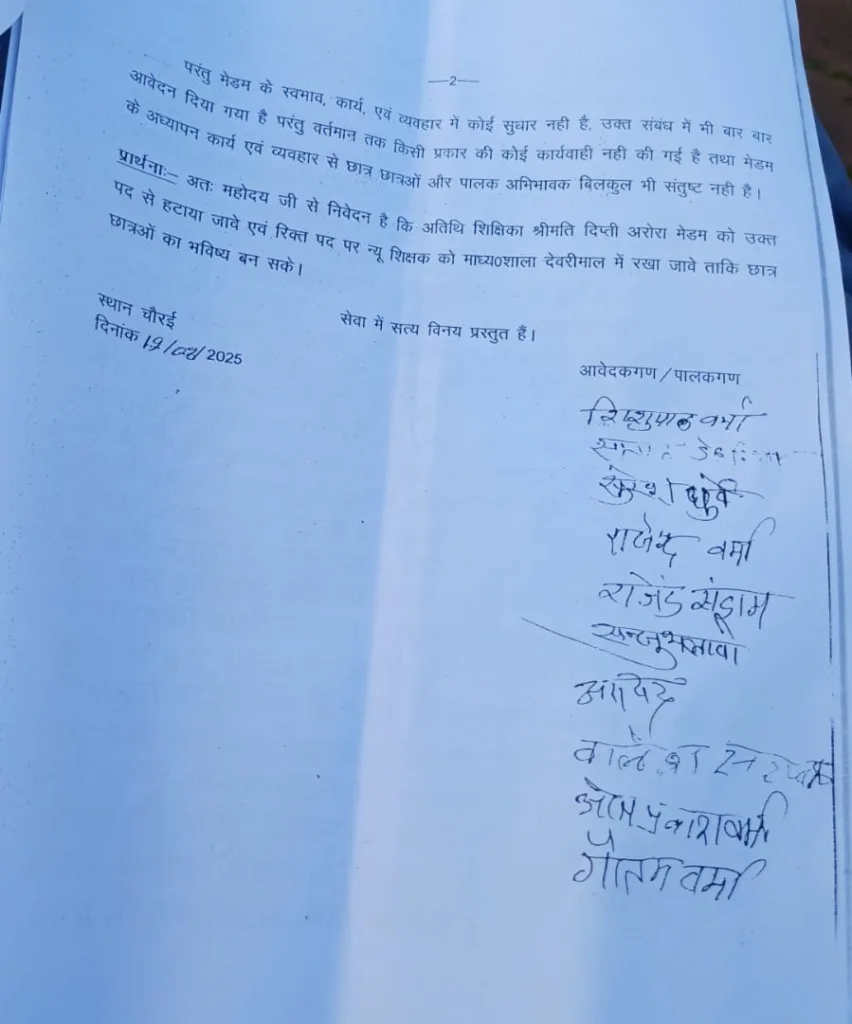 —2—
परंतु मेडम के स्वभाव, कार्य, एवं व्यवहार में कोई सुधार नही है, उक्त संबंध में भी बार बार
आवेदन दिया गया है परंतु वर्तमान तक किसी प्रकार की कोई कार्यवाही नही की गई है तथा मेडम
के अध्यापन कार्य एवं व्यवहार से छात्र छात्रओं और पालक अभिभावक बिलकुल भी संतुष्ट नही है।
प्रार्थनाः— अतः महोदय जी से निवेदन है कि अतिथि शिक्षिका श्रीमति दिप्ती अरोरा मेडम को उक्त
पद से हटाया जावे एवं रिक्त पद पर न्यू शिक्षक को माध्य०शाला देवरीमाल में रखा जावे ताकि छात्र
छात्रओं का भविष्य बन सके।
सेवा में सत्य विनय प्रस्तुत हैं।
स्थान चौरई
दिनांक 2025
आवेदकगण / पालकगण
वर्मा
सुरेश धुर्वे
राजेन्द्र वर्मा
राजेंद्र
ओमप्रकाश वर्मा
गौतम वर्मा